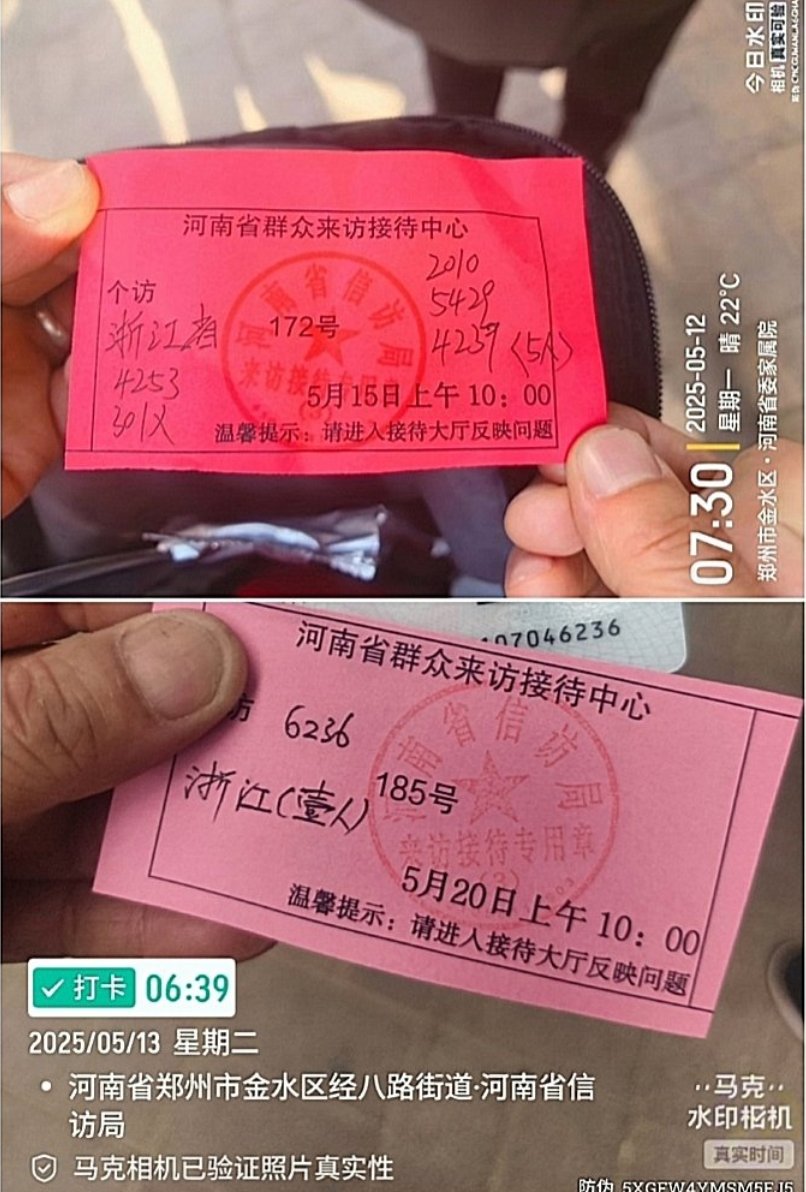 今日水印
相机 真实可验
河南省群众来访接待中心
个访
2010
5429
浙江省
172号
4239 (5人)
4253
301X
河南省信访局
来访接待专用章
(3)
5月15日上午 10：00
温馨提示：请进入接待大厅反映问题
07:30
2025-05-12
星期一 晴 22℃
郑州市金水区·河南省委家属院
107046236
河南省群众来访接待中心
访 6236
浙江(壹人)
185号
河南省信访局
来访接待专用章
(3)
5月20日上午 10：00
温馨提示：请进入接待大厅反映问题
打卡 06:39
2025/05/13 星期二
河南省郑州市金水区经八路街道·河南省信
访局
马克相机已验证照片真实性
马克
水印相机
真实时间
防伪 5XGFW4YMSM5EJ5